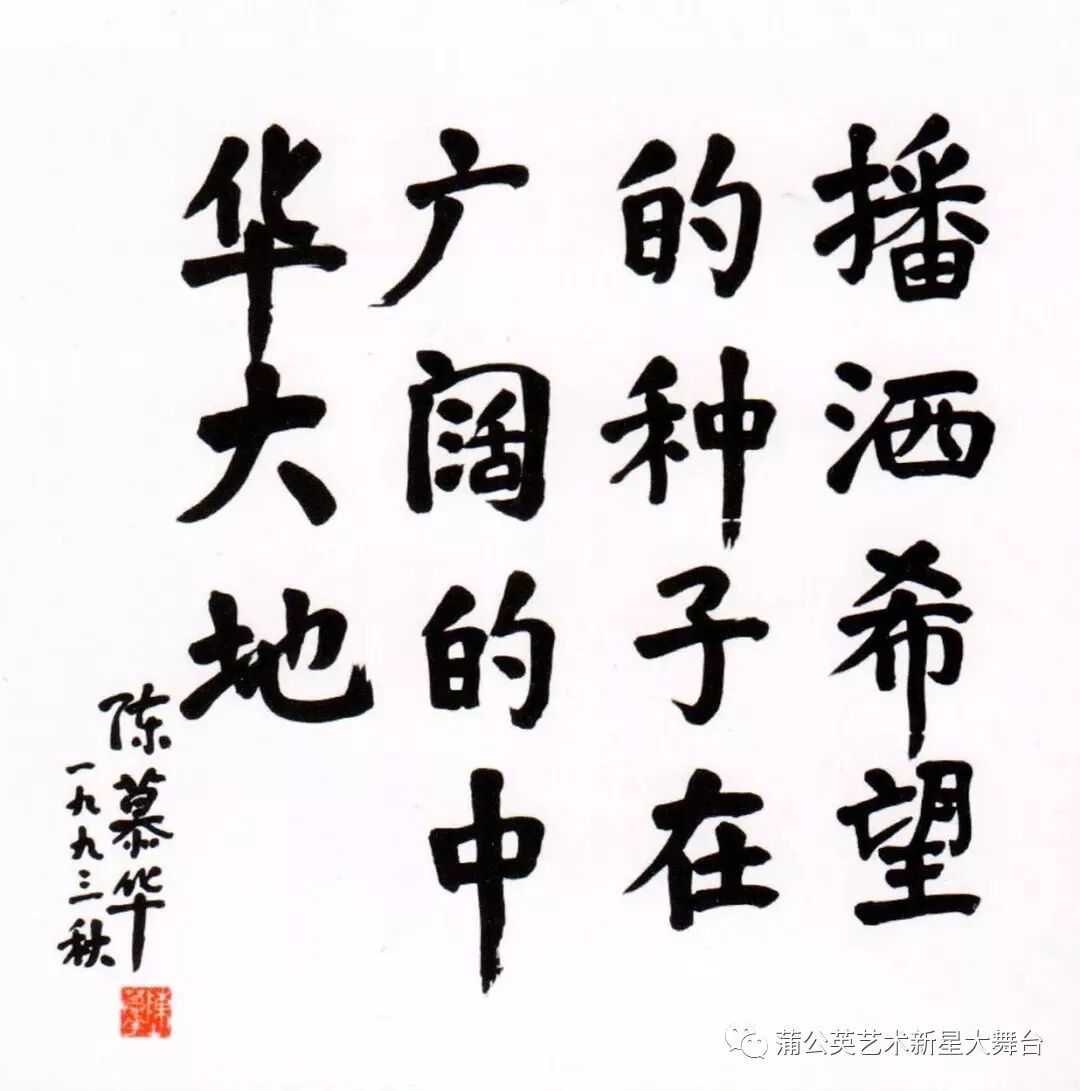 播洒希望
的种子在
广阔的中
华大地
陈慕华
一九九三秋
蒲公英艺术新星大舞台